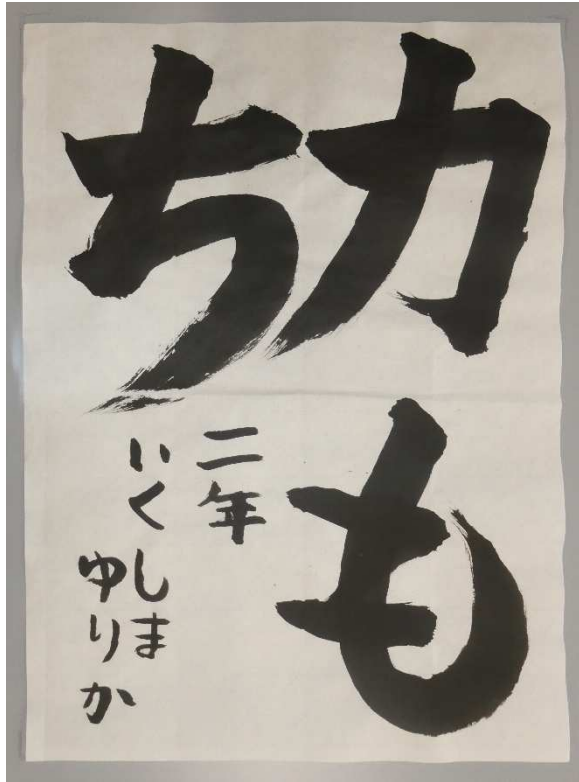 力も
ち
二年
いくしま
ゆりか